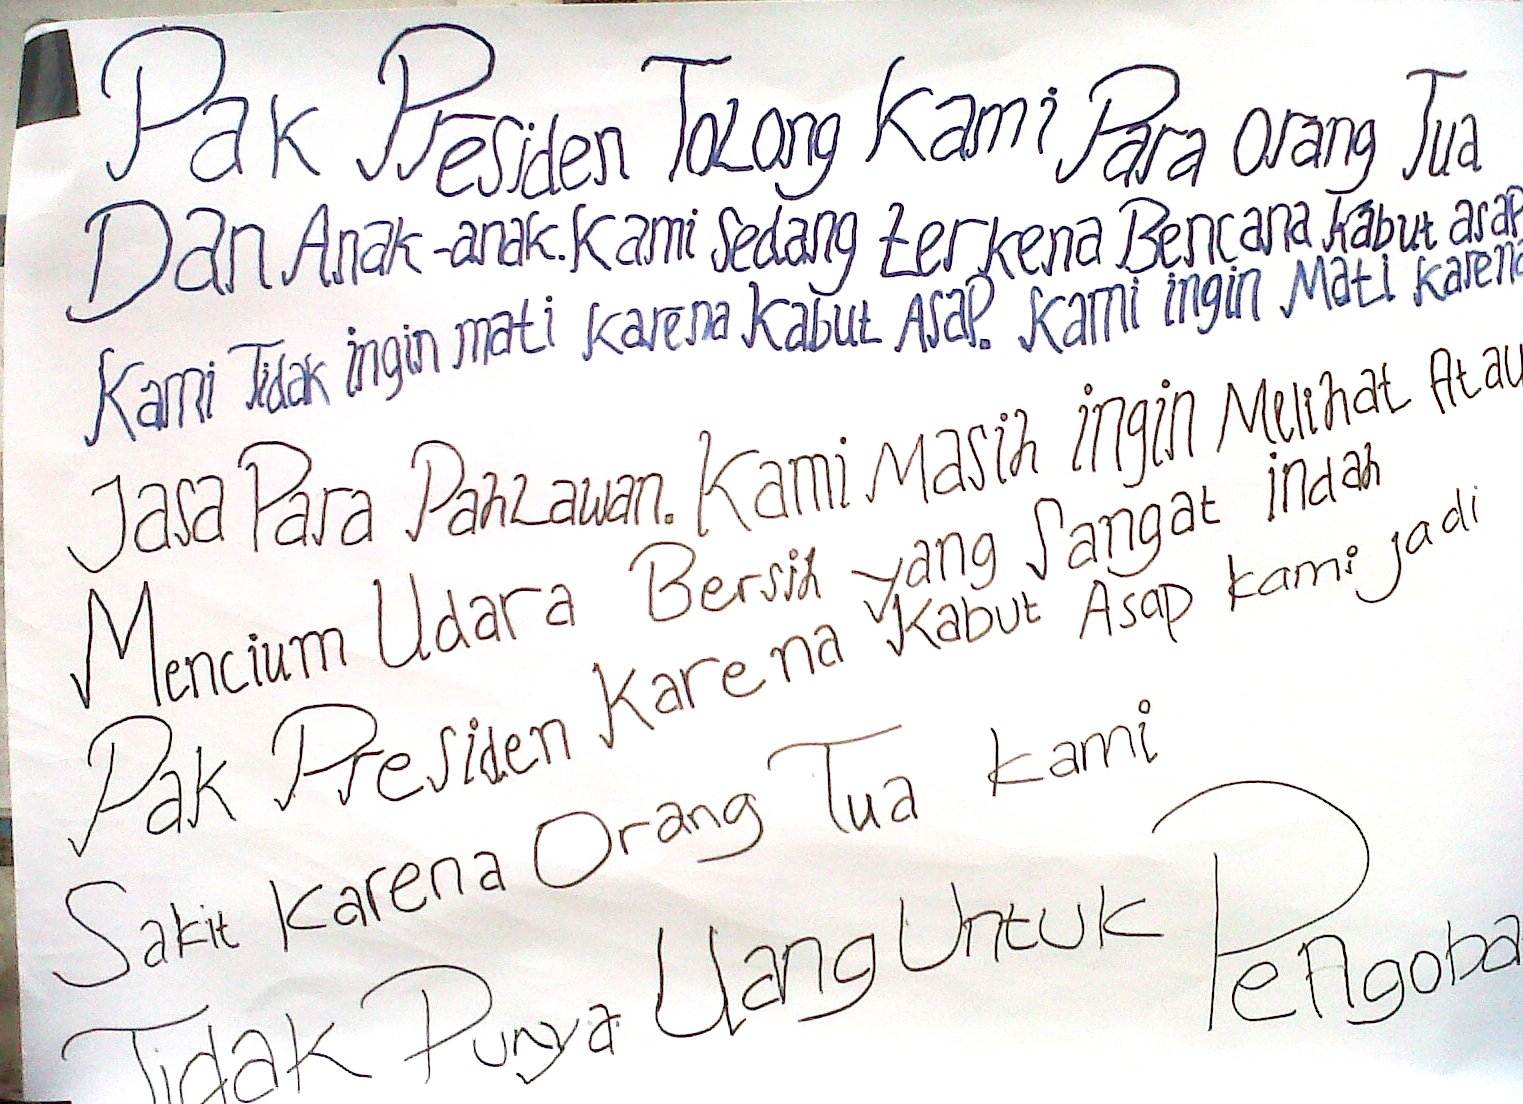 Pak Presiden Tolong Kami Para Orang Tua
Dan Anak-anak. Kami Sedang terkena Bencana kabut asap
Kami Tidak ingin mati karena kabut Asap. Kami ingin Mati karena
Jasa Para Pahlawan. Kami Masih ingin Melihat Atau
Mencium Udara Bersih yang Sangat indah
Pak Presiden Karena Kabut Asap kami jadi
Sakit Karena Orang Tua kami
Tidak Punya Uang Untuk Pengoba